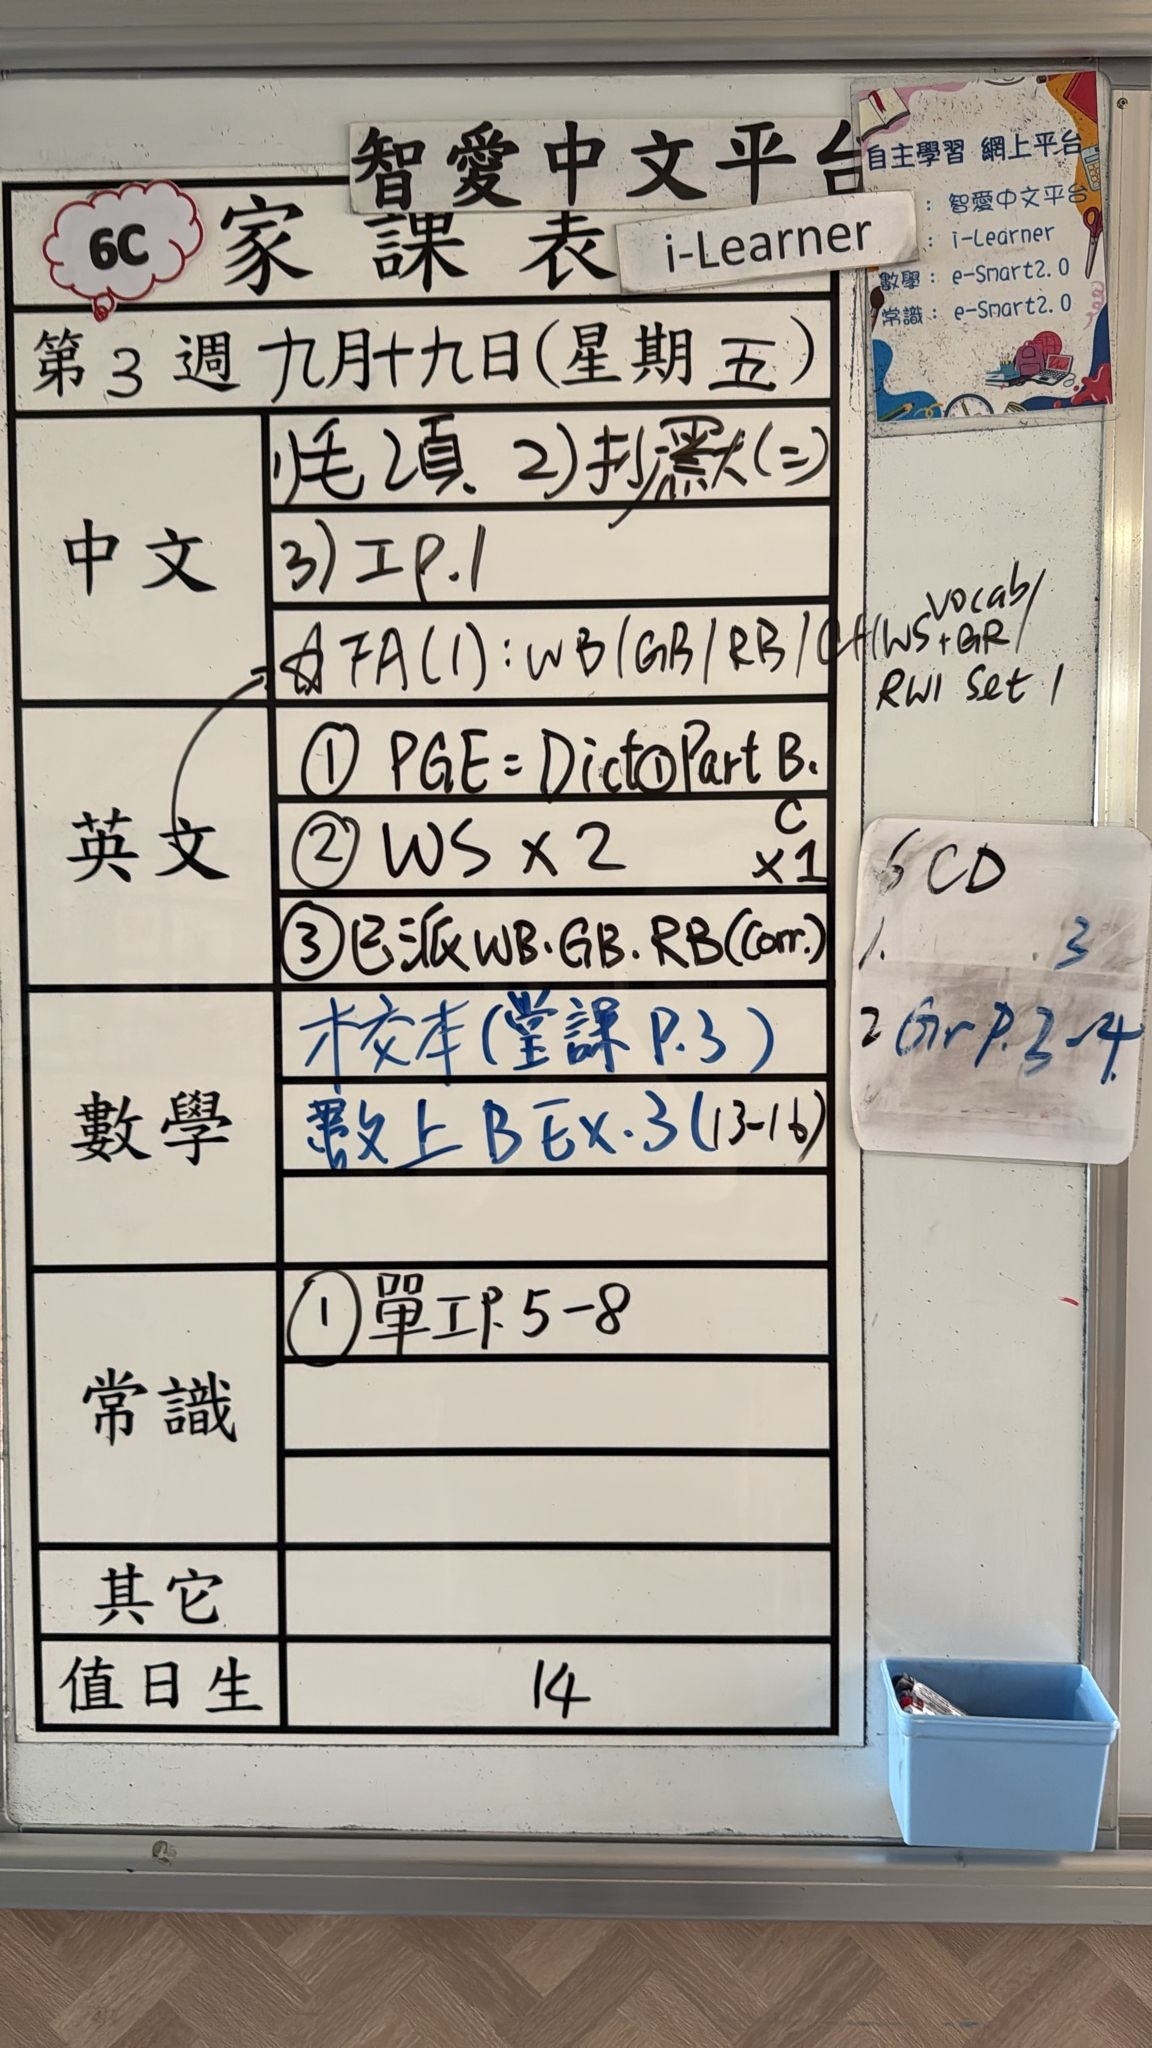 智愛中文平台
自主學習 網上平台
6C
家課表
i-Learner
: 智愛中文平台
: i-Learner
數學: e-Smart2.0
常識: e-Smart2.0
第3週 九月十九日(星期五)
中文
1)毛2頁 2)抄默(二)
3)工P.1
☆FA(1):WB/GB/RB/CH(WS+GR/
vocab/
RW1 Set 1
英文
① PGE=Dict①Part B.
② WS x2
C
x1
③已派WB.GB.RB(Corr.)
6CD
1. 3
2 Gr P.3-4
數學
校本(堂課P.3)
數上B Ex.3(13-16)
常識
①單工P.5-8
其它
值日生
14